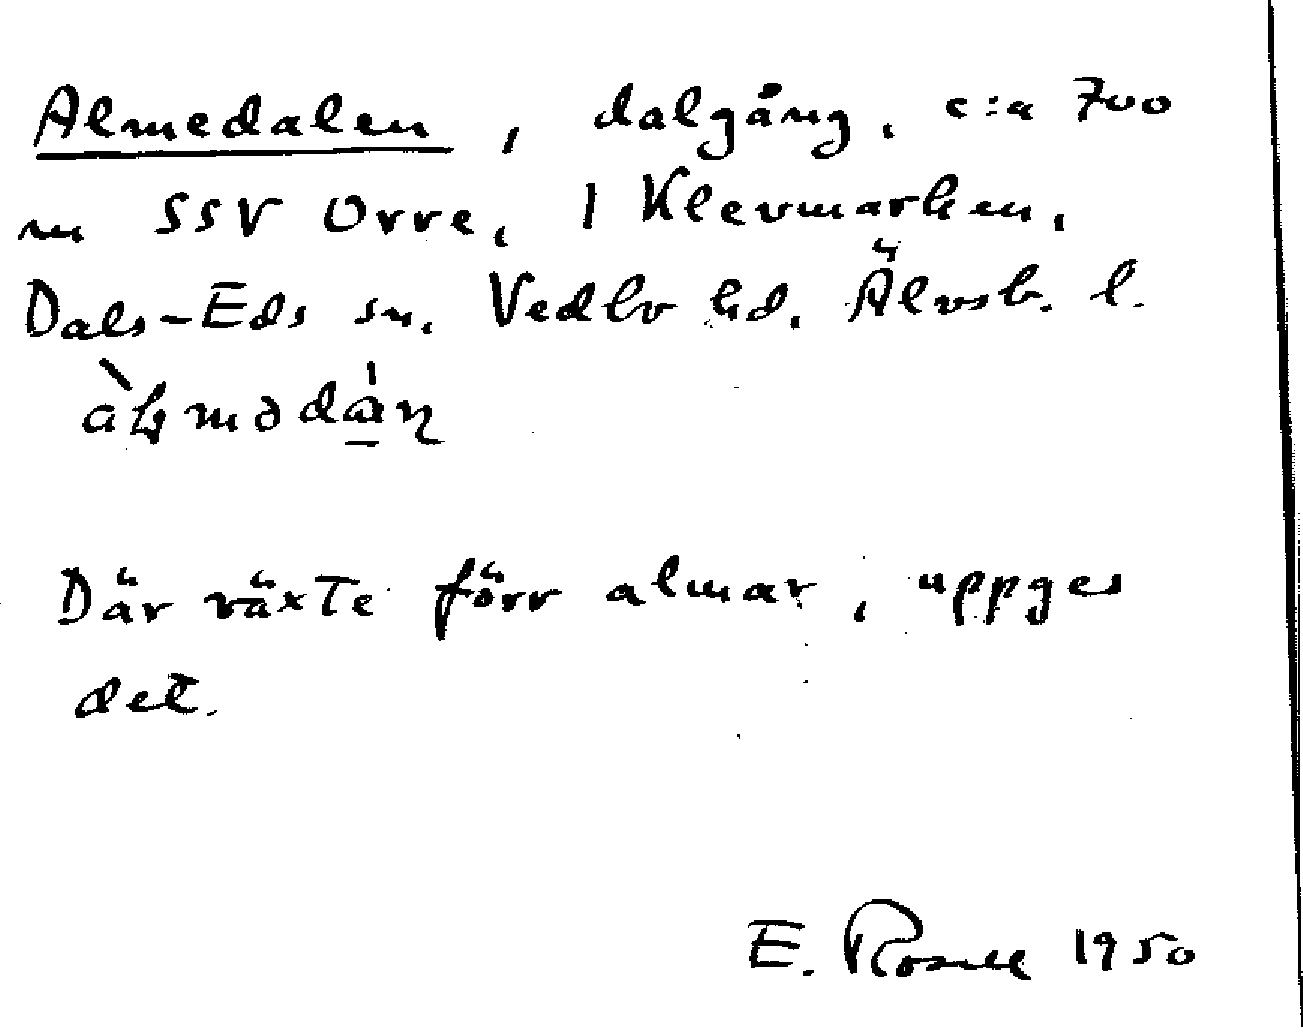 Almedalen, dalgång, c:a 700
m SSV Orre, 1 Klevmarken,
Dals-Eds sn. Vedbo hd. Älvsb. l.
Där växte förr almar, uppges
det.
E. Rosell 1950